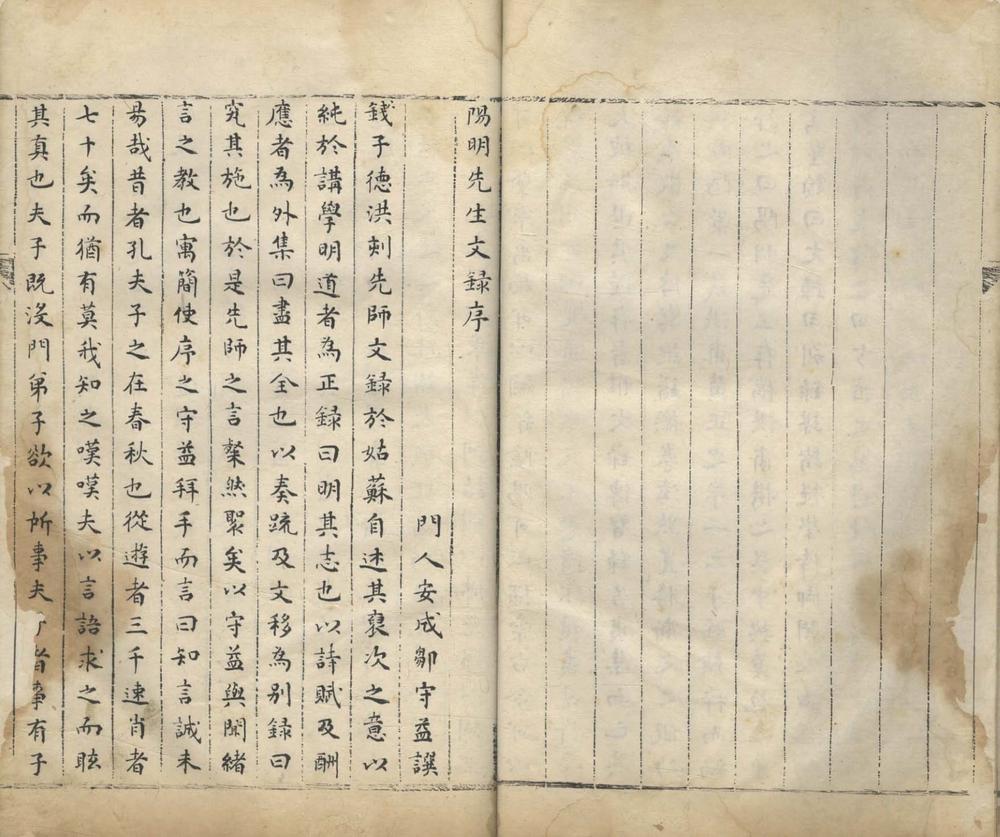 陽明先生文録序
門人安成鄒守益譔
錢子德洪刻先師文録於姑蘇自述其裒次之意以
純於講學明道者為正録曰明其志也以詩賦及酬
應者為外集曰盡其全也以奏疏及文移為别録曰
究其施也於是先師之言粲然聚矣以守益與聞緒
言之教也寓簡使序之守益拜手而言曰知言誠未
易哉昔者孔夫子之在春秋也從遊者三千速肖者
七十矣而猶有莫我知之嘆嘆夫以言語求之而眩
其真也夫子既没門弟子欲以所事夫子者事有子